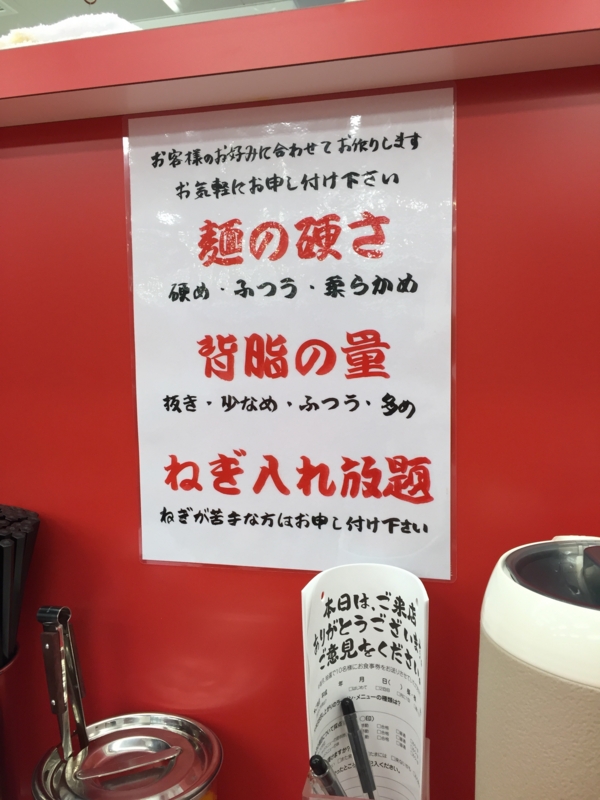 お客様のお好みに合わせてお作りします
お気軽にお申し付け下さい
麺の硬さ
硬め・ふつう・柔らかめ
背脂の量
抜き・少なめ・ふつう・多め
ねぎ入れ放題
ねぎが苦手な方はお申し付け下さい
本日は、ご来店
ありがとうございます
ご意見をください
年 月 日( )
メニューの種類は?